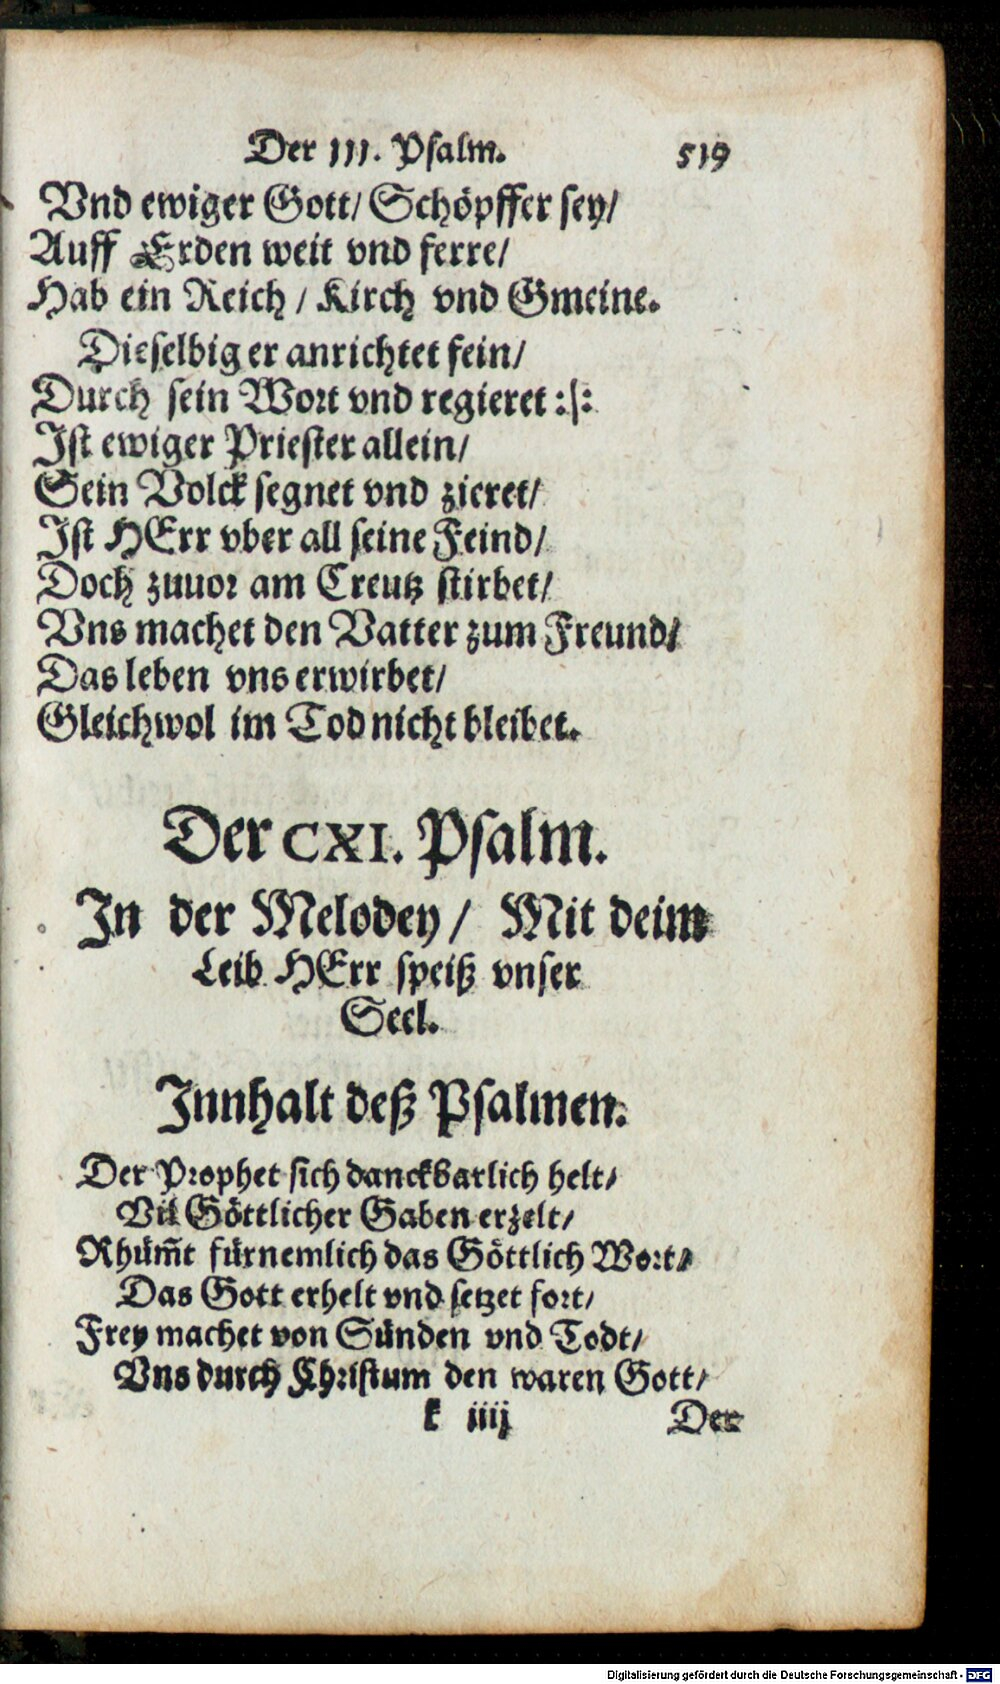 Der 111. Psalm. 519
Vnd ewiger Gott/ Schöpffer sey/
Auff Erden weit vnd ferre/
Hab ein Reich/ Kirch vnd Gmeine.
Dieselbig er anrichtet fein/
Durch sein Wort vnd regieret :|:
Ist ewiger Priester allein/
Sein Volck segnet vnd zieret/
Ist HErr vber all seine Feind/
Doch zuuor am Creutz stirbet/
Vns machet den Vatter zum Freund/
Das leben vns erwirbet/
Gleichwol im Tod nicht bleibet.
Der CXI. Psalm.
In der Melodey/ Mit deim
Leib HErr speiß vnser
Seel.
Innhalt deß Psalmen.
Der Prophet sich danckbarlich helt/
Vil Göttlicher Gaben erzelt/
Rhüm̄t fürnemlich das Göttlich Wort/
Das Gott erhelt vnd setzet fort/
Frey machet von Sünden vnd Todt/
Vns durch Christum den waren Gott/
k iiij Der
Digitalisierung gefördert durch die Deutsche Forschungsgemeinschaft - DFG